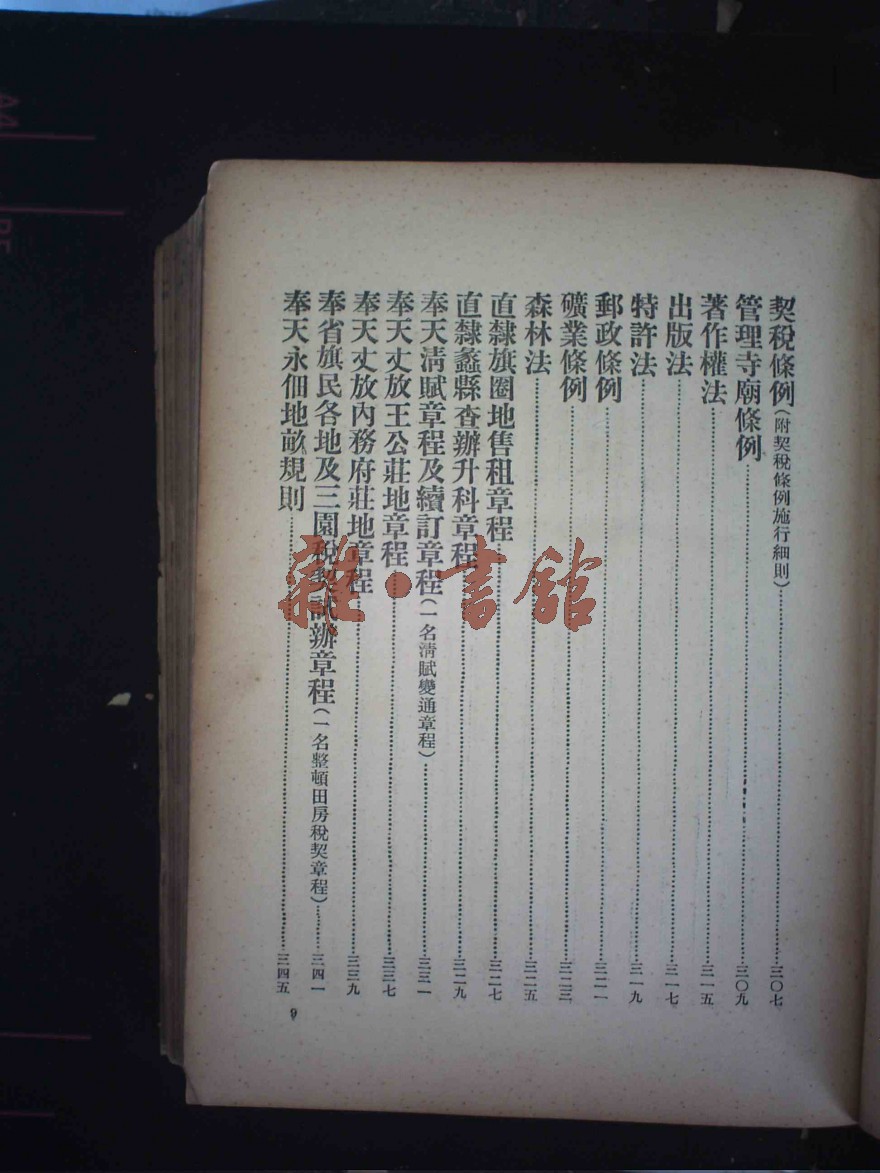 契稅條例(附契稅條例施行細則)………三〇七
管理寺廟條例………三〇九
著作權法………三一五
出版法………三一七
特許法………三一九
郵政條例………三二一
礦業條例………三二三
森林法………三二五
直隸旗圈地售租章程………三二七
直隸蠡縣查辦升科章程………三二九
奉天淸賦章程及續訂章程(一名淸賦變通章程)………三三一
奉天丈放王公莊地章程………三三七
奉天丈放內務府莊地章程………三三九
奉省旗民各地及三園稅契試辦章程(一名整頓田房稅契章程)………三四一
奉天永佃地畝規則………三四五
9
雜·書館
A4